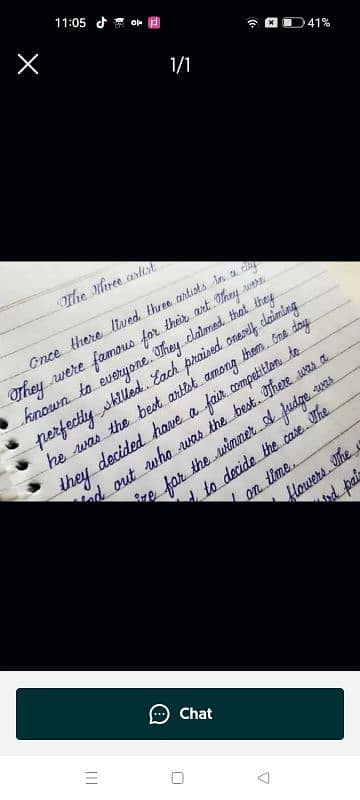 11:05
41%
1/1
The three artist
Once there lived three artists in a city
They were famous for their art. They were
known to everyone. They claimed that they
perfectly skilled. Each praised oneself claiming
he was the best artist among them One day
they decided have a fair competition to
out who was the best. There was a
for the winner. A judge was
to decide the case The
on time.
flowers. The
Chat